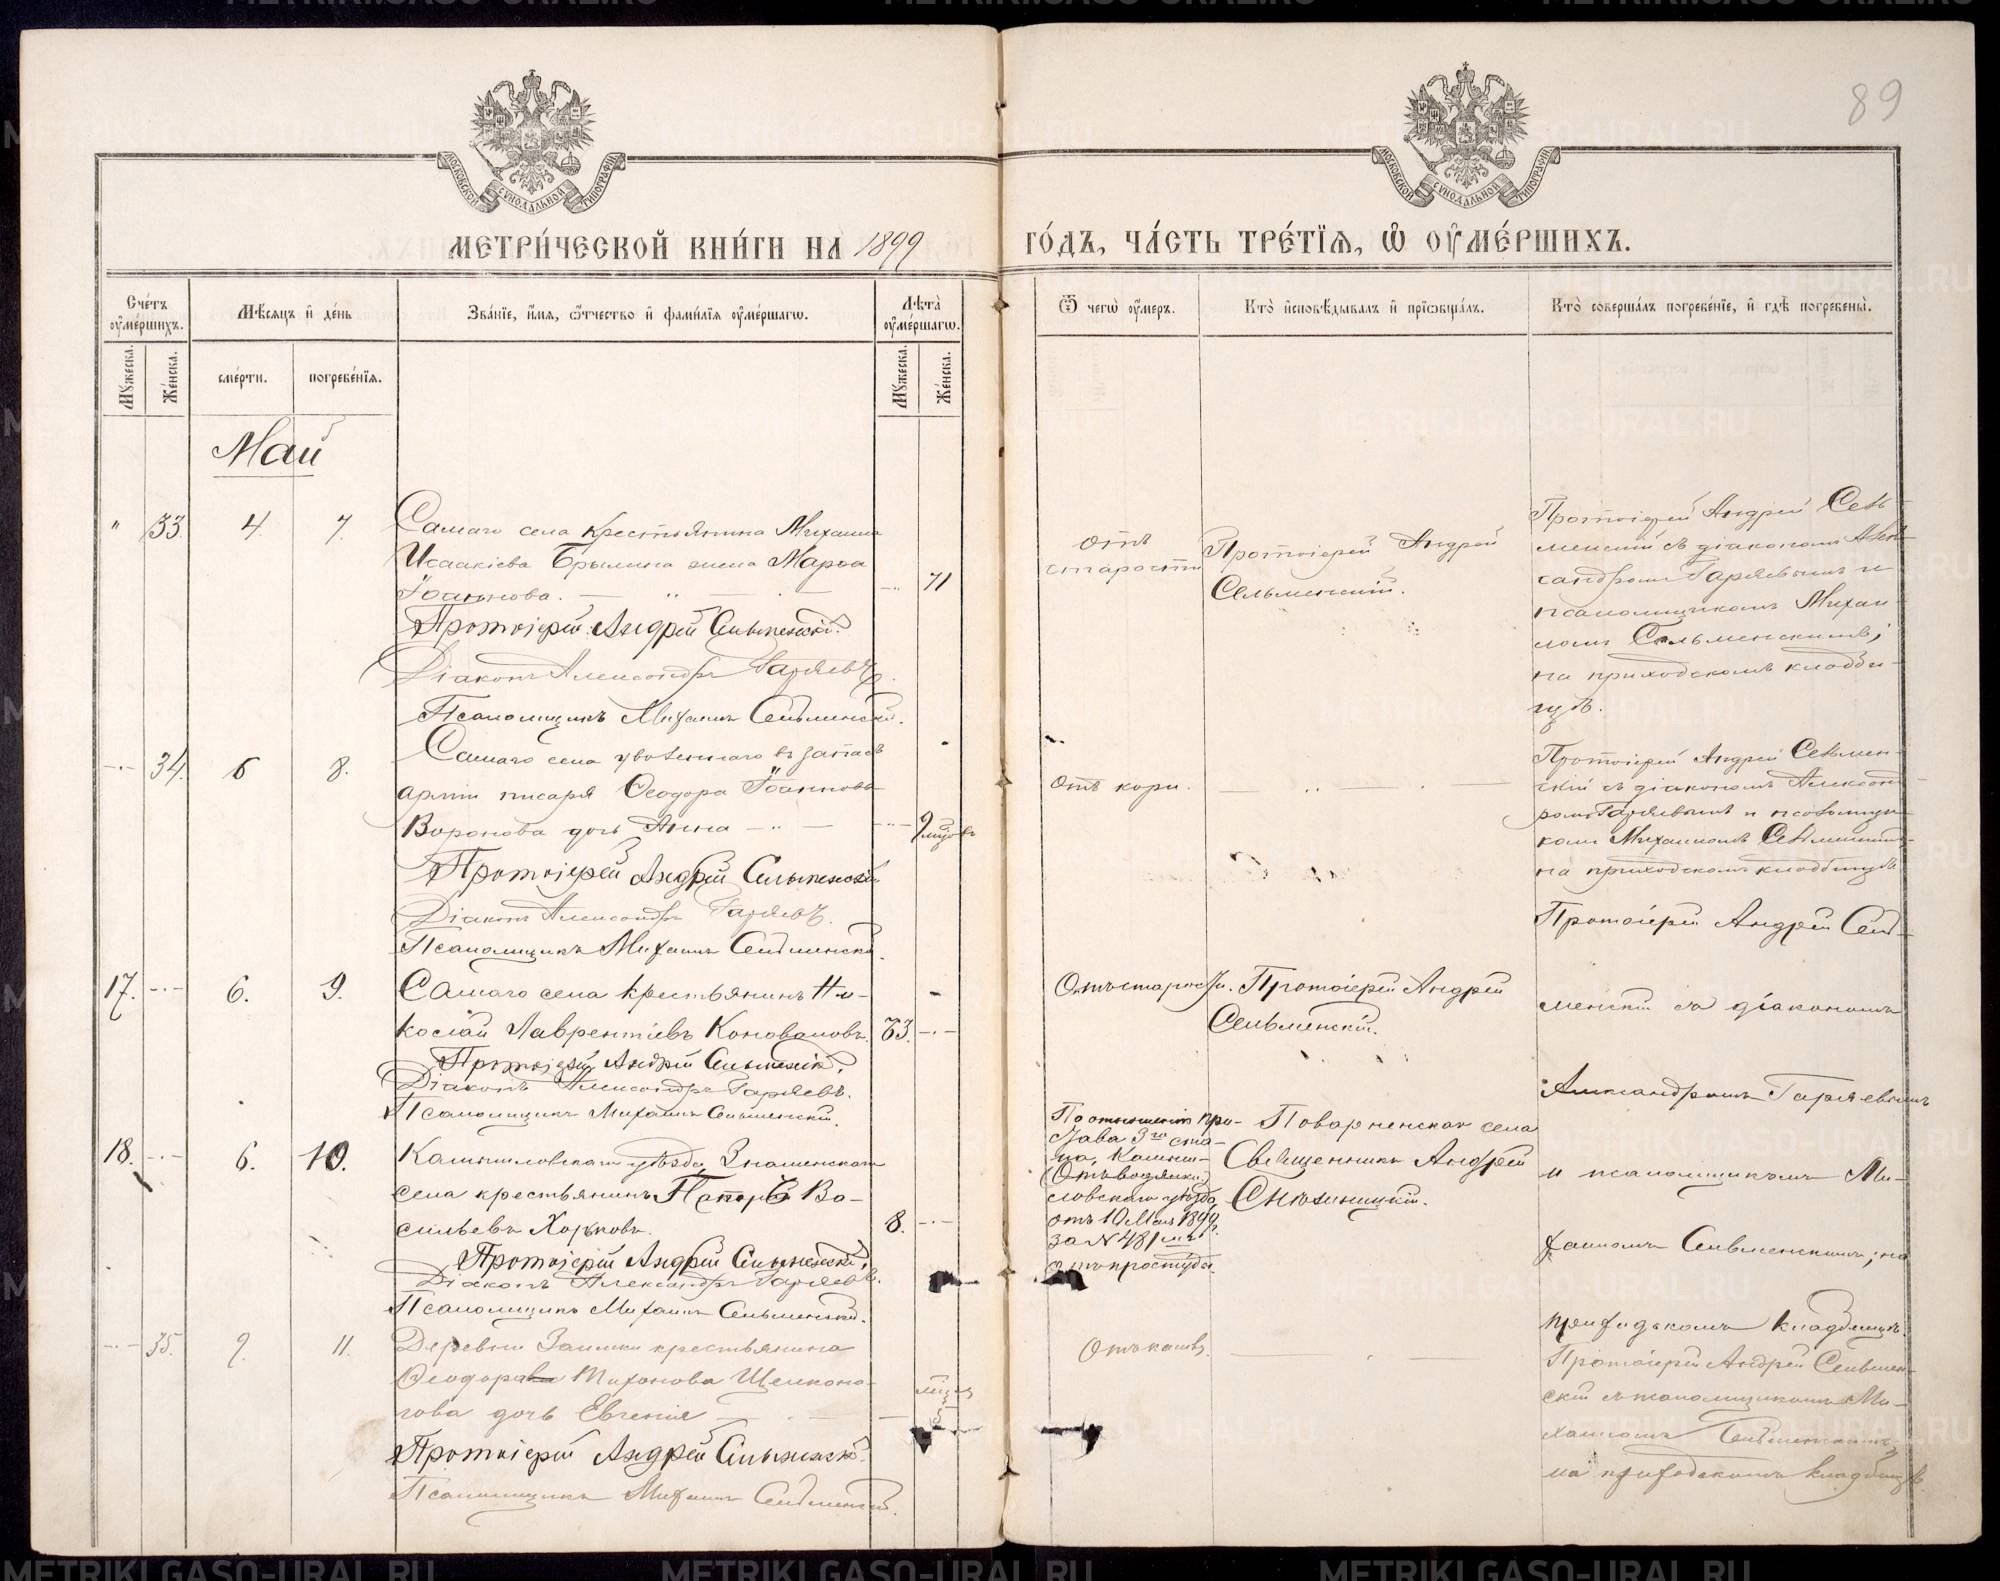 89
МОСКОВСКОЙ СУНОДАЛЬНОЙ ТИПОГРАФІИ
МОСКОВСКОЙ СУНОДАЛЬНОЙ ТИПОГРАФІИ
МЕТРИ́ЧЕСКОЙ КНИ́ГИ НА 1899 ГО́ДЪ, ЧА́СТЬ ТРЕ́ТІЯ, Ѽ ОУ҆МЕ́РШИХЪ.
Сче́тъ оу҆ме́ршихъ.
Мѣ́сяцъ и҆ де́нь
Зва́ніе, и҆́мя, ѻ҆́тчество и҆ фами́лія оу҆ме́ршагѡ.
Лѣ́та оу҆ме́ршагѡ.
Ѿ чегѡ̀ оу҆́меръ.
Кто̀ и҆сповѣ́дывалъ и҆ пріѡбща́лъ.
Кто̀ соверша́лъ погребе́ніе, и҆ гдѣ̀ погребены̀.
Мꙋ́жеска.
Же́нска.
сме́рти.
погребе́нія.
Мꙋ́жеска.
Же́нска.
Май
" 33. 4. 7.
Самаго села крестьянина Михаила
Исаакіева Брылина жена Марѳа
Іоаннова.
71
Протоіерей Андрей Сельменскій.
Діаконъ Александръ Гаряевъ.
Псаломщикъ Михаилъ Сельменскій.
отъ
старости
Протоіерей Андрей
Сельменскій.
Протоіерей Андрей Сель-
менскій съ діакономъ Алек-
сандромъ Гаряевымъ и
псаломщикомъ Михаи-
ломъ Сельменскимъ;
на приходскомъ кладби-
щѣ.
34. 6 8.
Самаго села уволеннаго въ запасъ
арміи писаря Ѳеодора Іоаннова
Воронова дочь Анна
9 мцовъ
Протоіерей Андрей Сельменскій
Діаконъ Александръ Гаряевъ.
Псаломщикъ Михаилъ Сельменскій.
отъ кори.
Протоіерей Андрей Сельмен-
скій съ діакономъ Александ-
ромъ Гаряевымъ и псаломщи-
комъ Михаиломъ Сельменскимъ
на приходскомъ кладбищѣ
17. 6. 9.
Самаго села крестьянинъ Ни-
колай Лаврентіевъ Коноваловъ.
73.
Протоіерей Андрей Сельменскій.
Діаконъ Александръ Гаряевъ.
Псаломщикъ Михаилъ Сельменскій.
Отъ старости.
Протоіерей Андрей
Сельменскій.
Протоіерей Андрей Сель-
менскій съ діакономъ
Александромъ Гаряевымъ
и псаломщикомъ Ми-
хаиломъ Сельменскимъ; на
приходскомъ кладбищѣ.
18. 6. 10.
Камышловскаго уѣзда Знаменскаго
села крестьянинъ Ва-
сильевъ Хорьковъ.
8.
Протоіерей Андрей Сельменскій.
Діаконъ Александръ Гаряевъ.
Псаломщикъ Михаилъ Сельменскій.
По отношенію при-
става 3го ста-
на, Камыш-
ловскаго уѣзда
отъ 10 Мая 1899 г.
за № 481мъ
отъ простуды.
Поварненскаго села
Священникъ Андрей
35. 9. 11.
Деревни Заимки крестьянина
Ѳеодора Тихонова Щелконо-
гова дочь Евгенія
Протоіерей Андрей Сельменскій.
Псаломщикъ Михаилъ Сельменскій.
Отъ кашля.
Протоіерей Андрей Сельмен-
скій съ псаломщикомъ Ми-
хаиломъ Сельменскимъ
на приходскомъ кладбищѣ.
METRIKI.GASO-URAL.RU